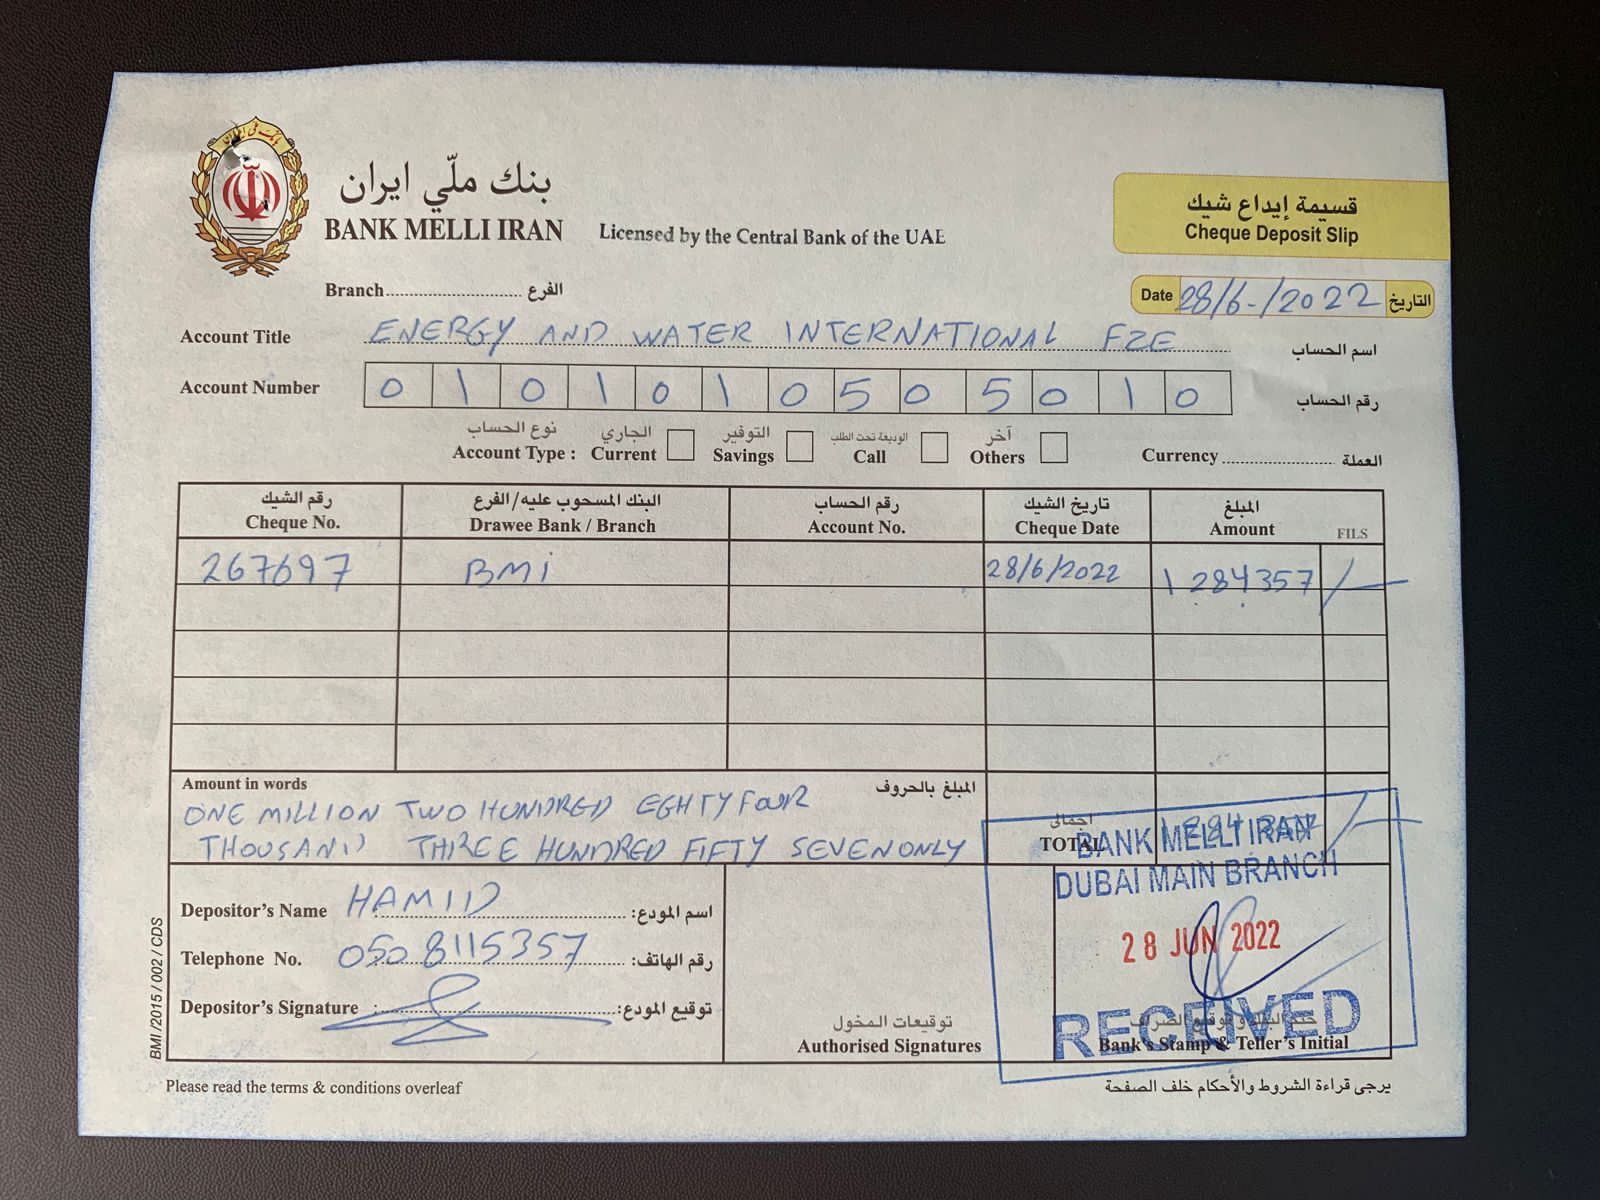 بانك ملى ايران
بنك ملّي ايران
BANK MELLI IRAN
Licensed by the Central Bank of the UAE
قسيمة إيداع شيك
Cheque Deposit Slip
Branch الفرع
Date 28/6-/2022 التاريخ
Account Title ENERGY AND WATER INTERNATIONAL FZE اسم الحساب
Account Number 0 1 0 1 0 1 0 5 0 5 0 1 0 رقم الحساب
نوع الحساب الجاري التوفير الوديعة تحت الطلب آخر
Account Type : Current Savings Call Others Currency العملة
رقم الشيك البنك المسحوب عليه/الفرع رقم الحساب تاريخ الشيك المبلغ
Cheque No. Drawee Bank / Branch Account No. Cheque Date Amount FILS
267697 BMi 28/6/2022 1 284357 /-
Amount in words المبلغ بالحروف
ONE MILLION TWO HUNDRED EGHTY FOUR
THOUSAND THREE HUNDRED FIFTY SEVEN ONLY
اجمالى
TOTAL
BANK MELLI IRAN
DUBAI MAIN BRANCH
28 JUN 2022
RECEIVED
Depositor's Name HAMID اسم المودع:
Telephone No. 050 8115357 رقم الهاتف:
Depositor's Signature : توقيع المودع:
توقيعات المخول
Authorised Signatures
Bank's Stamp & Teller's Initial
BMI/2015 / 002 / CDS
Please read the terms & conditions overleaf
يرجى قراءة الشروط والأحكام خلف الصفحة